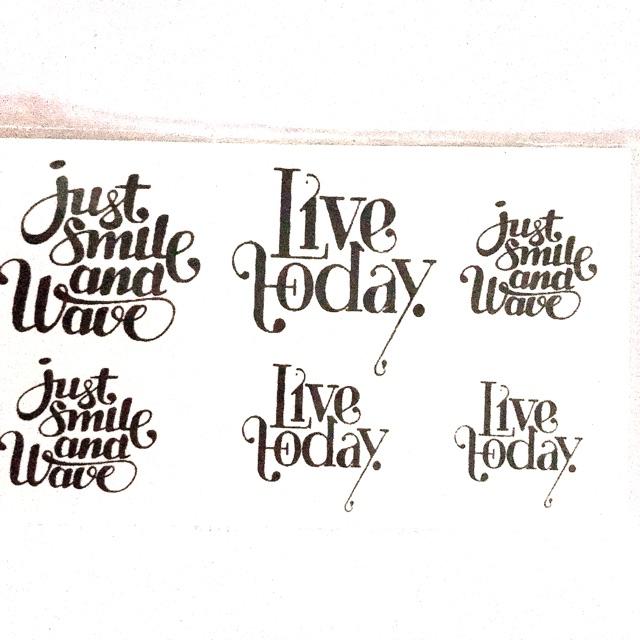 just
smile
and
Wave
Live
today.
just
smile
and
Wave
just
smile
and
Wave
Live
today.
Live
today.